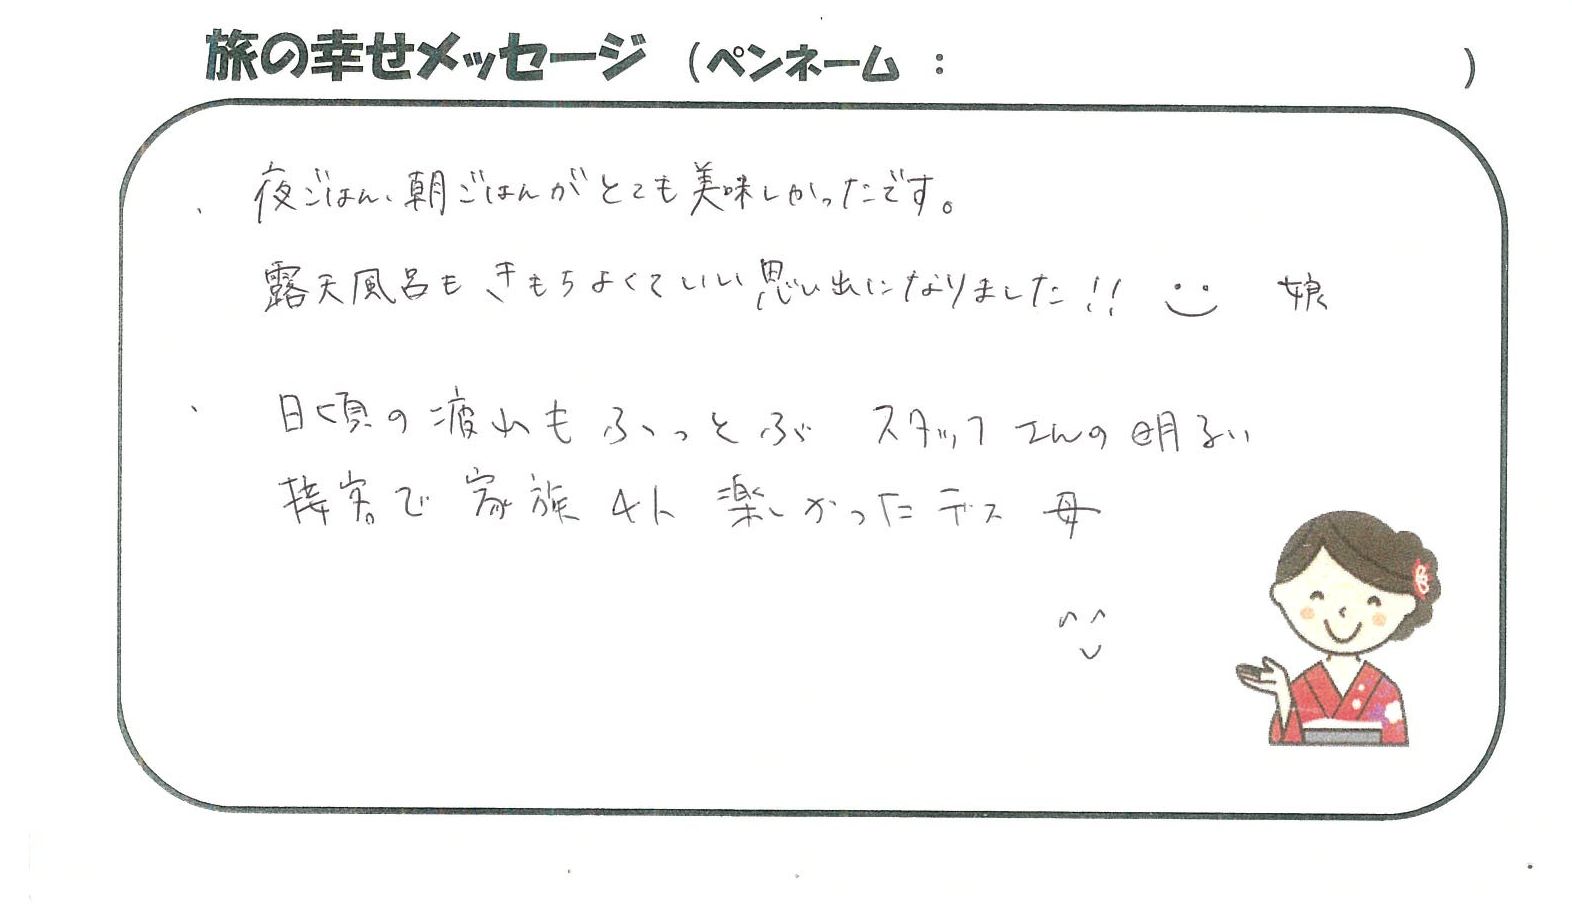 旅の幸せメッセージ (ペンネーム : )
、夜ごはん、朝ごはんがとても美味しかったです。
露天風呂もきもちよくていい思い出になりました!! 娘
、日頃の疲れもふっとぶ スタッフさんの明るい
接客で 家族4人 楽しかったデス 母